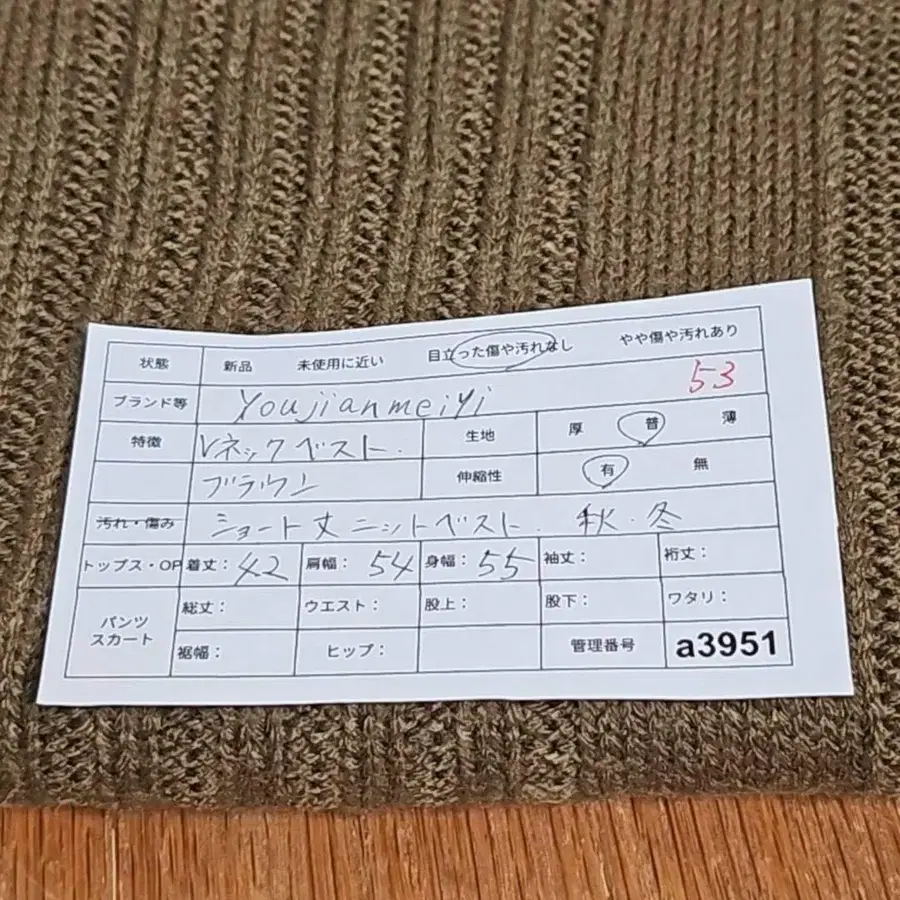 状態 新品 未使用に近い 目立った傷や汚れなし やや傷や汚れあり
ブランド等 youjianmeiyi 53
特徴 Vネックベスト. 生地 厚 普 薄
ブラウン 伸縮性 有 無
汚れ・傷み ショート丈ニットベスト. 秋.冬
トップス・OP 着丈: 42 肩幅: 54 身幅: 55 袖丈: 裄丈:
パンツ スカート 総丈: ウエスト: 股上: 股下: ワタリ:
裾幅: ヒップ: 管理番号 a3951